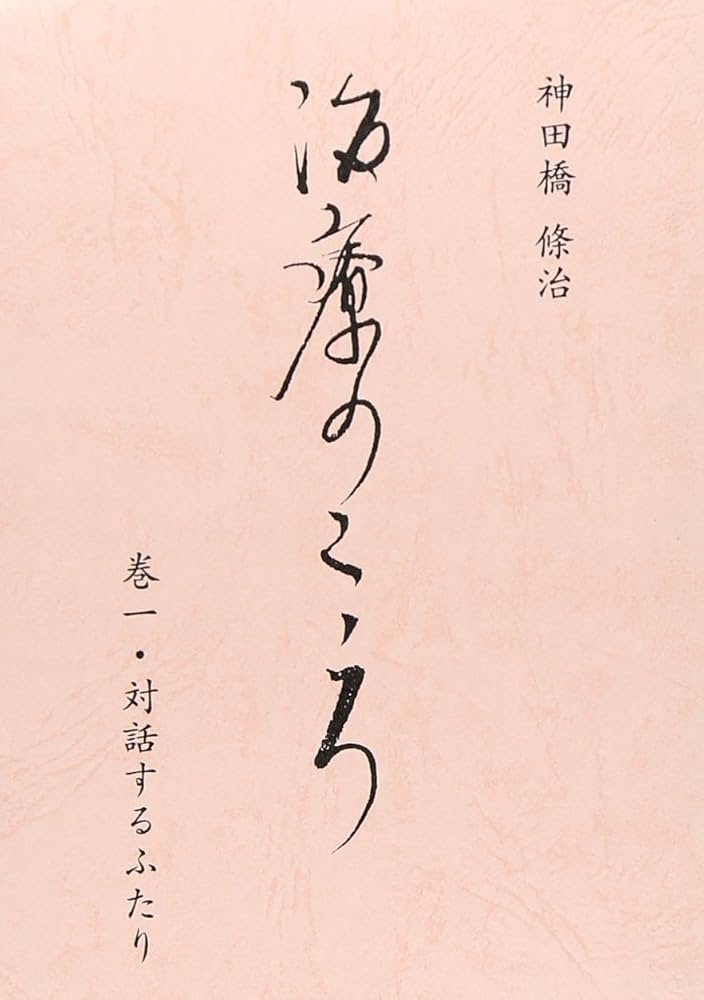 神田橋 條治
治療のこゝろ
巻一・対話するふたり